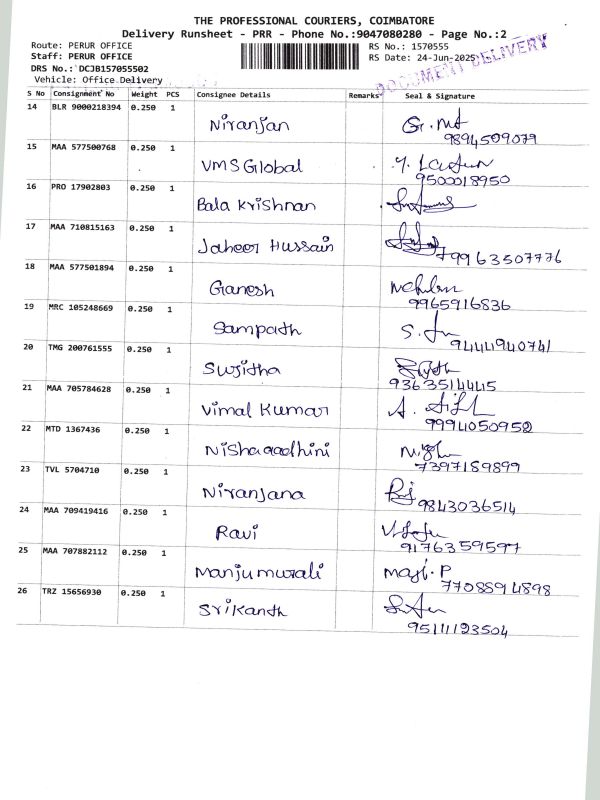 THE PROFESSIONAL COURIERS, COIMBATORE
Delivery Runsheet - PRR - Phone No.:9047080280 - Page No.:2
Route: PERUR OFFICE
RS No.: 1570555
Staff: PERUR OFFICE
RS Date: 24-Jun-2025
DRS No.: DCJB157055502
DOCUMENT DELIVERY
Vehicle: Office Delivery
S No Consignment No Weight PCS Consignee Details Remarks Seal & Signature
14 BLR 9000218394 0.250 1
Niranjan
9894509079
15 MAA 577500768 0.250 1
VMS Global
9500018950
16 PRO 17902803 0.250 1
Bala Krishnan
17 MAA 710815163 0.250 1
Jaheer Hussain
79963507776
18 MAA 577501894 0.250 1
Ganesh
9965916836
19 MRC 105248669 0.250 1
Sampath
9444940741
20 TMG 200761555 0.250 1
Sujitha
9363514415
21 MAA 705784628 0.250 1
Vimal Kumar
9994050952
22 MTD 1367436 0.250 1
Nishaaadhini
7397189899
23 TVL 5704710 0.250 1
Niranjana
9843036514
24 MAA 709419416 0.250 1
Ravi
9176359597
25 MAA 707882112 0.250 1
Manjumurali Majl. P
7708894898
26 TRZ 15656930 0.250 1
Srikanth
95111123504